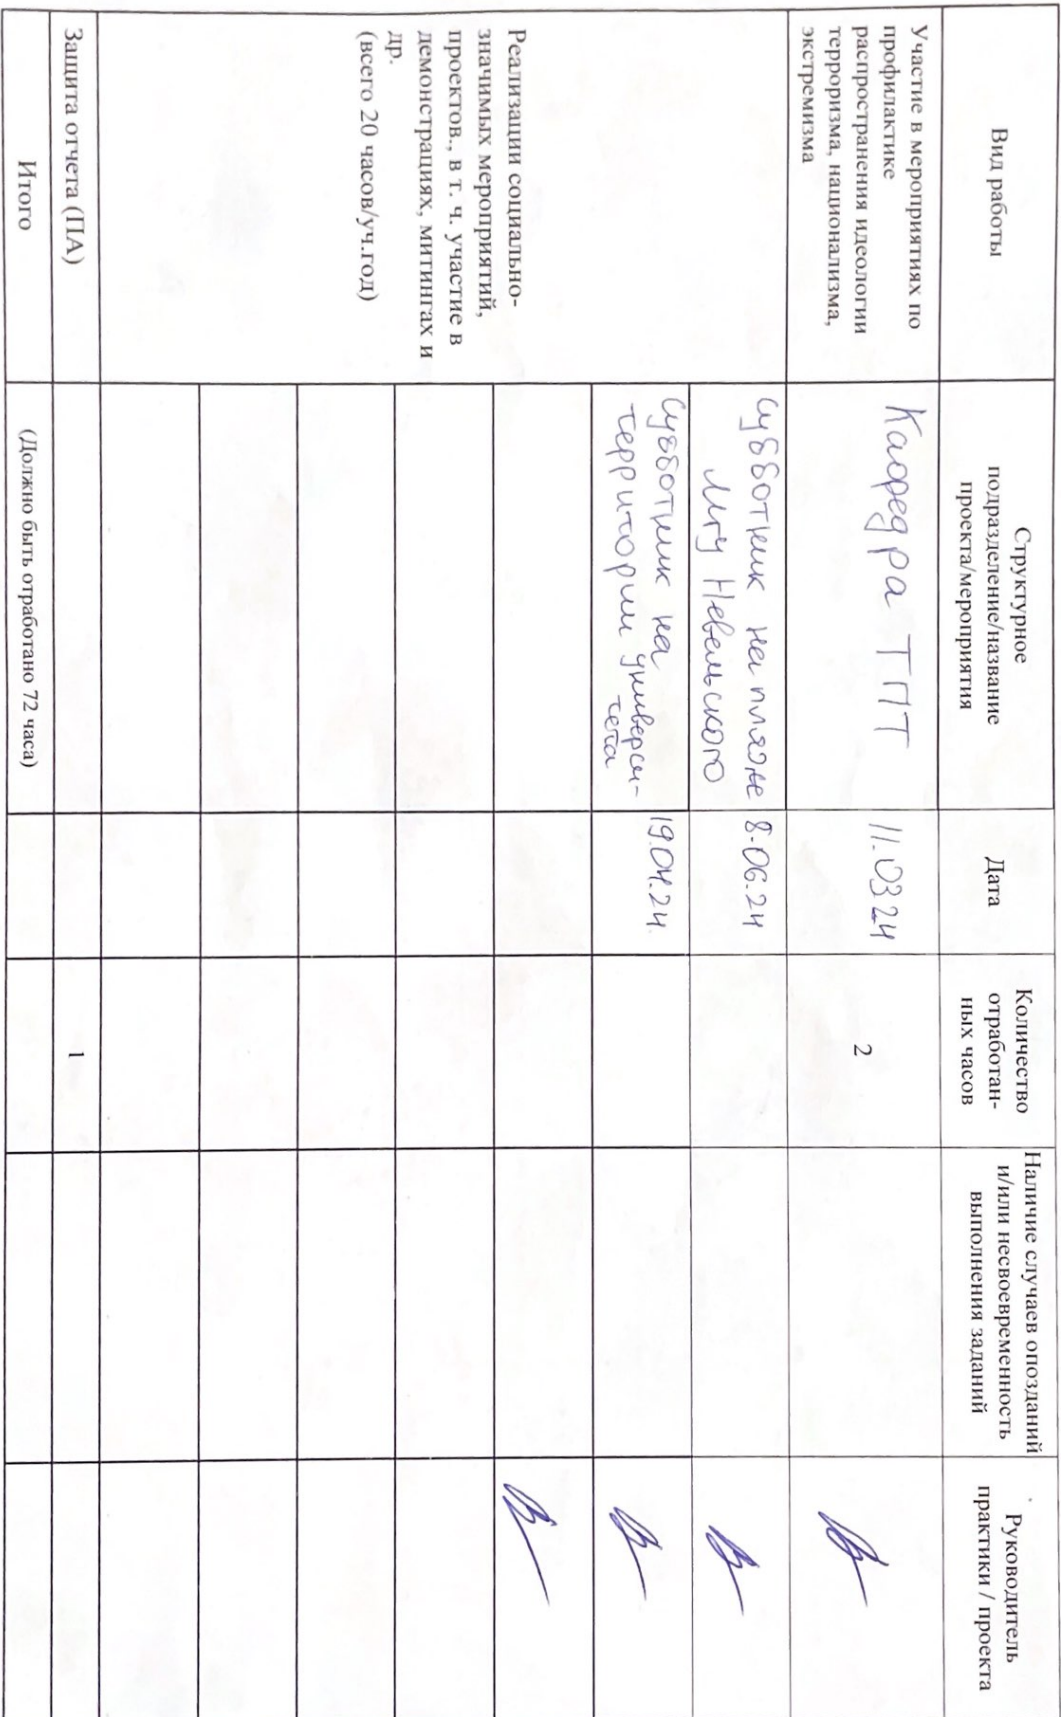 Вид работы
Структурное
подразделение/название
проекта/мероприятия
Дата
Количество
отработан-
ных часов
Наличие случаев опозданий
и/или несвоевременность
выполнения заданий
Руководитель
практики / проекта
Участие в мероприятиях по
профилактике
распространения идеологии
терроризма, национализма,
экстремизма
Кафедра ТПТ
11.03 24
2
Реализации социально-
значимых мероприятий,
проектов., в т. ч. участие в
демонстрациях, митингах и
др.
(всего 20 часов/уч.год)
Субботник на пляже
МГУ Невельского
8.06.24
Субботник на
территории универси-
тета
19.04.24.
Защита отчета (ПА)
1
Итого
(Должно быть отработано 72 часа)